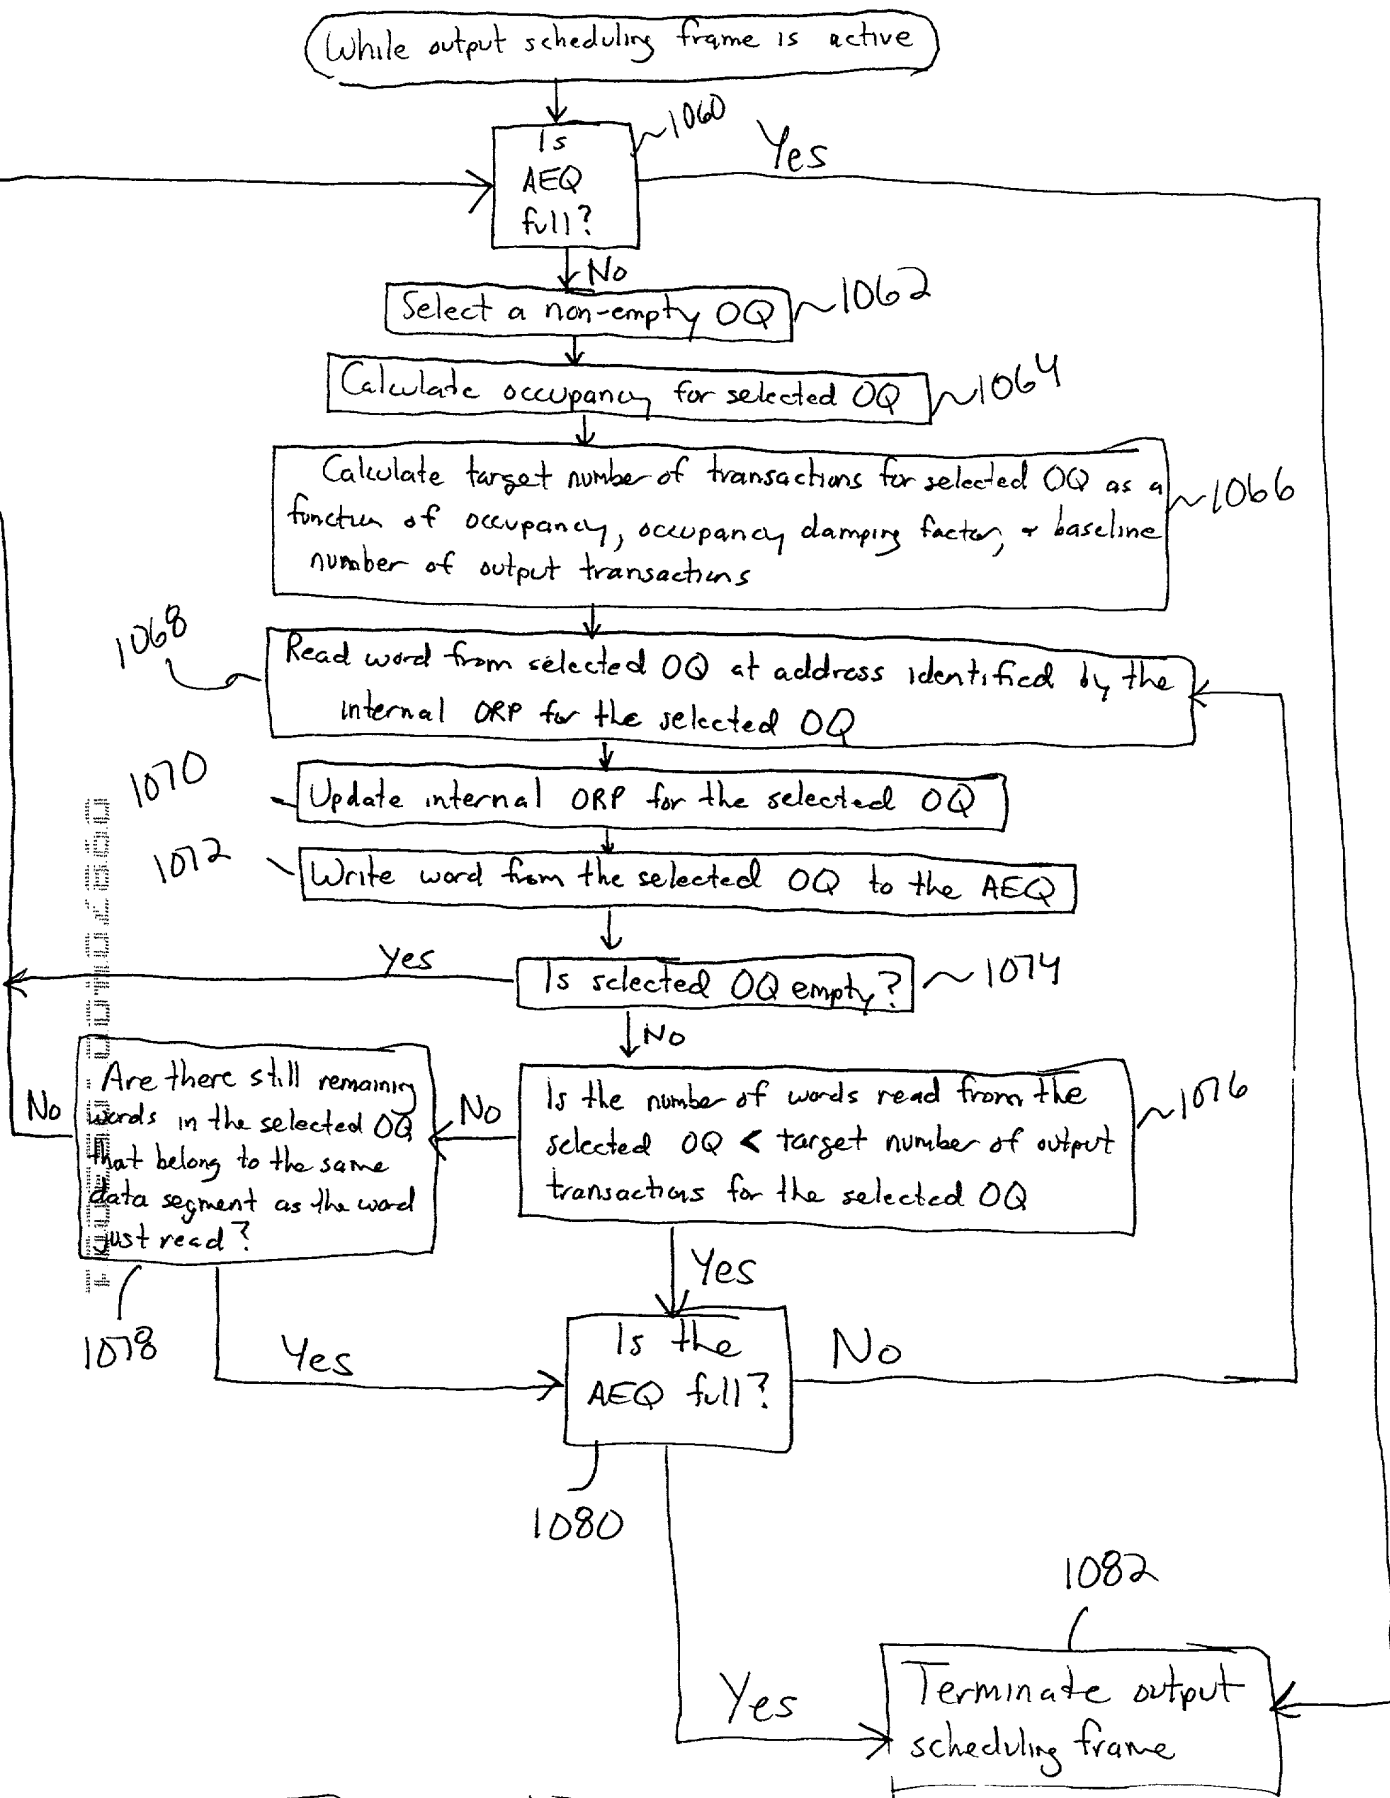 While output scheduling frame is active
1060
Is
AEQ
full?
Yes
No
Select a non-empty OQ
1062
Calculate occupancy for selected OQ
1064
Calculate target number of transactions for selected OQ as a
function of occupancy, occupancy damping factor, + baseline
number of output transactions
1066
1068
Read word from selected OQ at address identified by the
internal ORP for the selected OQ
1070
Update internal ORP for the selected OQ
1072
Write word from the selected OQ to the AEQ
Yes
Is selected OQ empty?
1074
No
Are there still remaining
words in the selected OQ
that belong to the same
data segment as the word
just read?
No
No
Is the number of words read from the
selected OQ < target number of output
transactions for the selected OQ
1076
1078
Yes
Yes
Is the
AEQ full?
No
1080
1082
Yes
Terminate output
scheduling frame